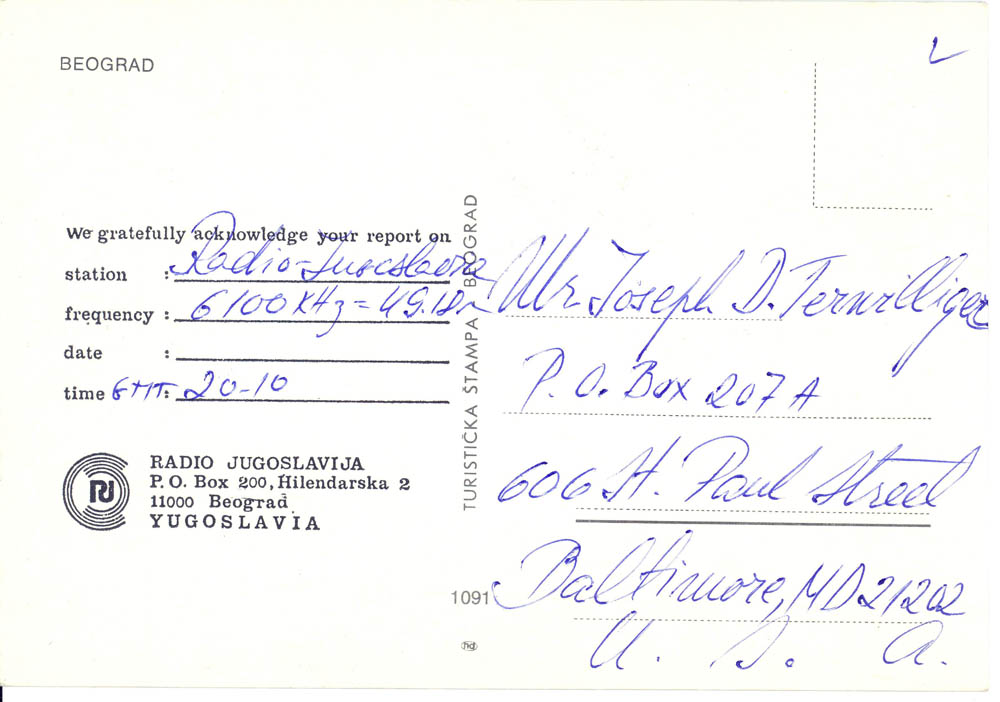 BEOGRAD
We gratefully acknowledge your report on
station : Radio-Jugoslavia
frequency : 6100 KHz = 49.18m
date :
time GMT: 20-10
RJ
RADIO JUGOSLAVIJA
P. O. Box 200, Hilendarska 2
11000 Beograd
YUGOSLAVIA
TURISTIČKA ŠTAMPA BEOGRAD
1091
Mr Joseph D. Terwilliger
P. O. Box 207 A
606 St. Paul Street
Baltimore, MD 21202
U. S. A.